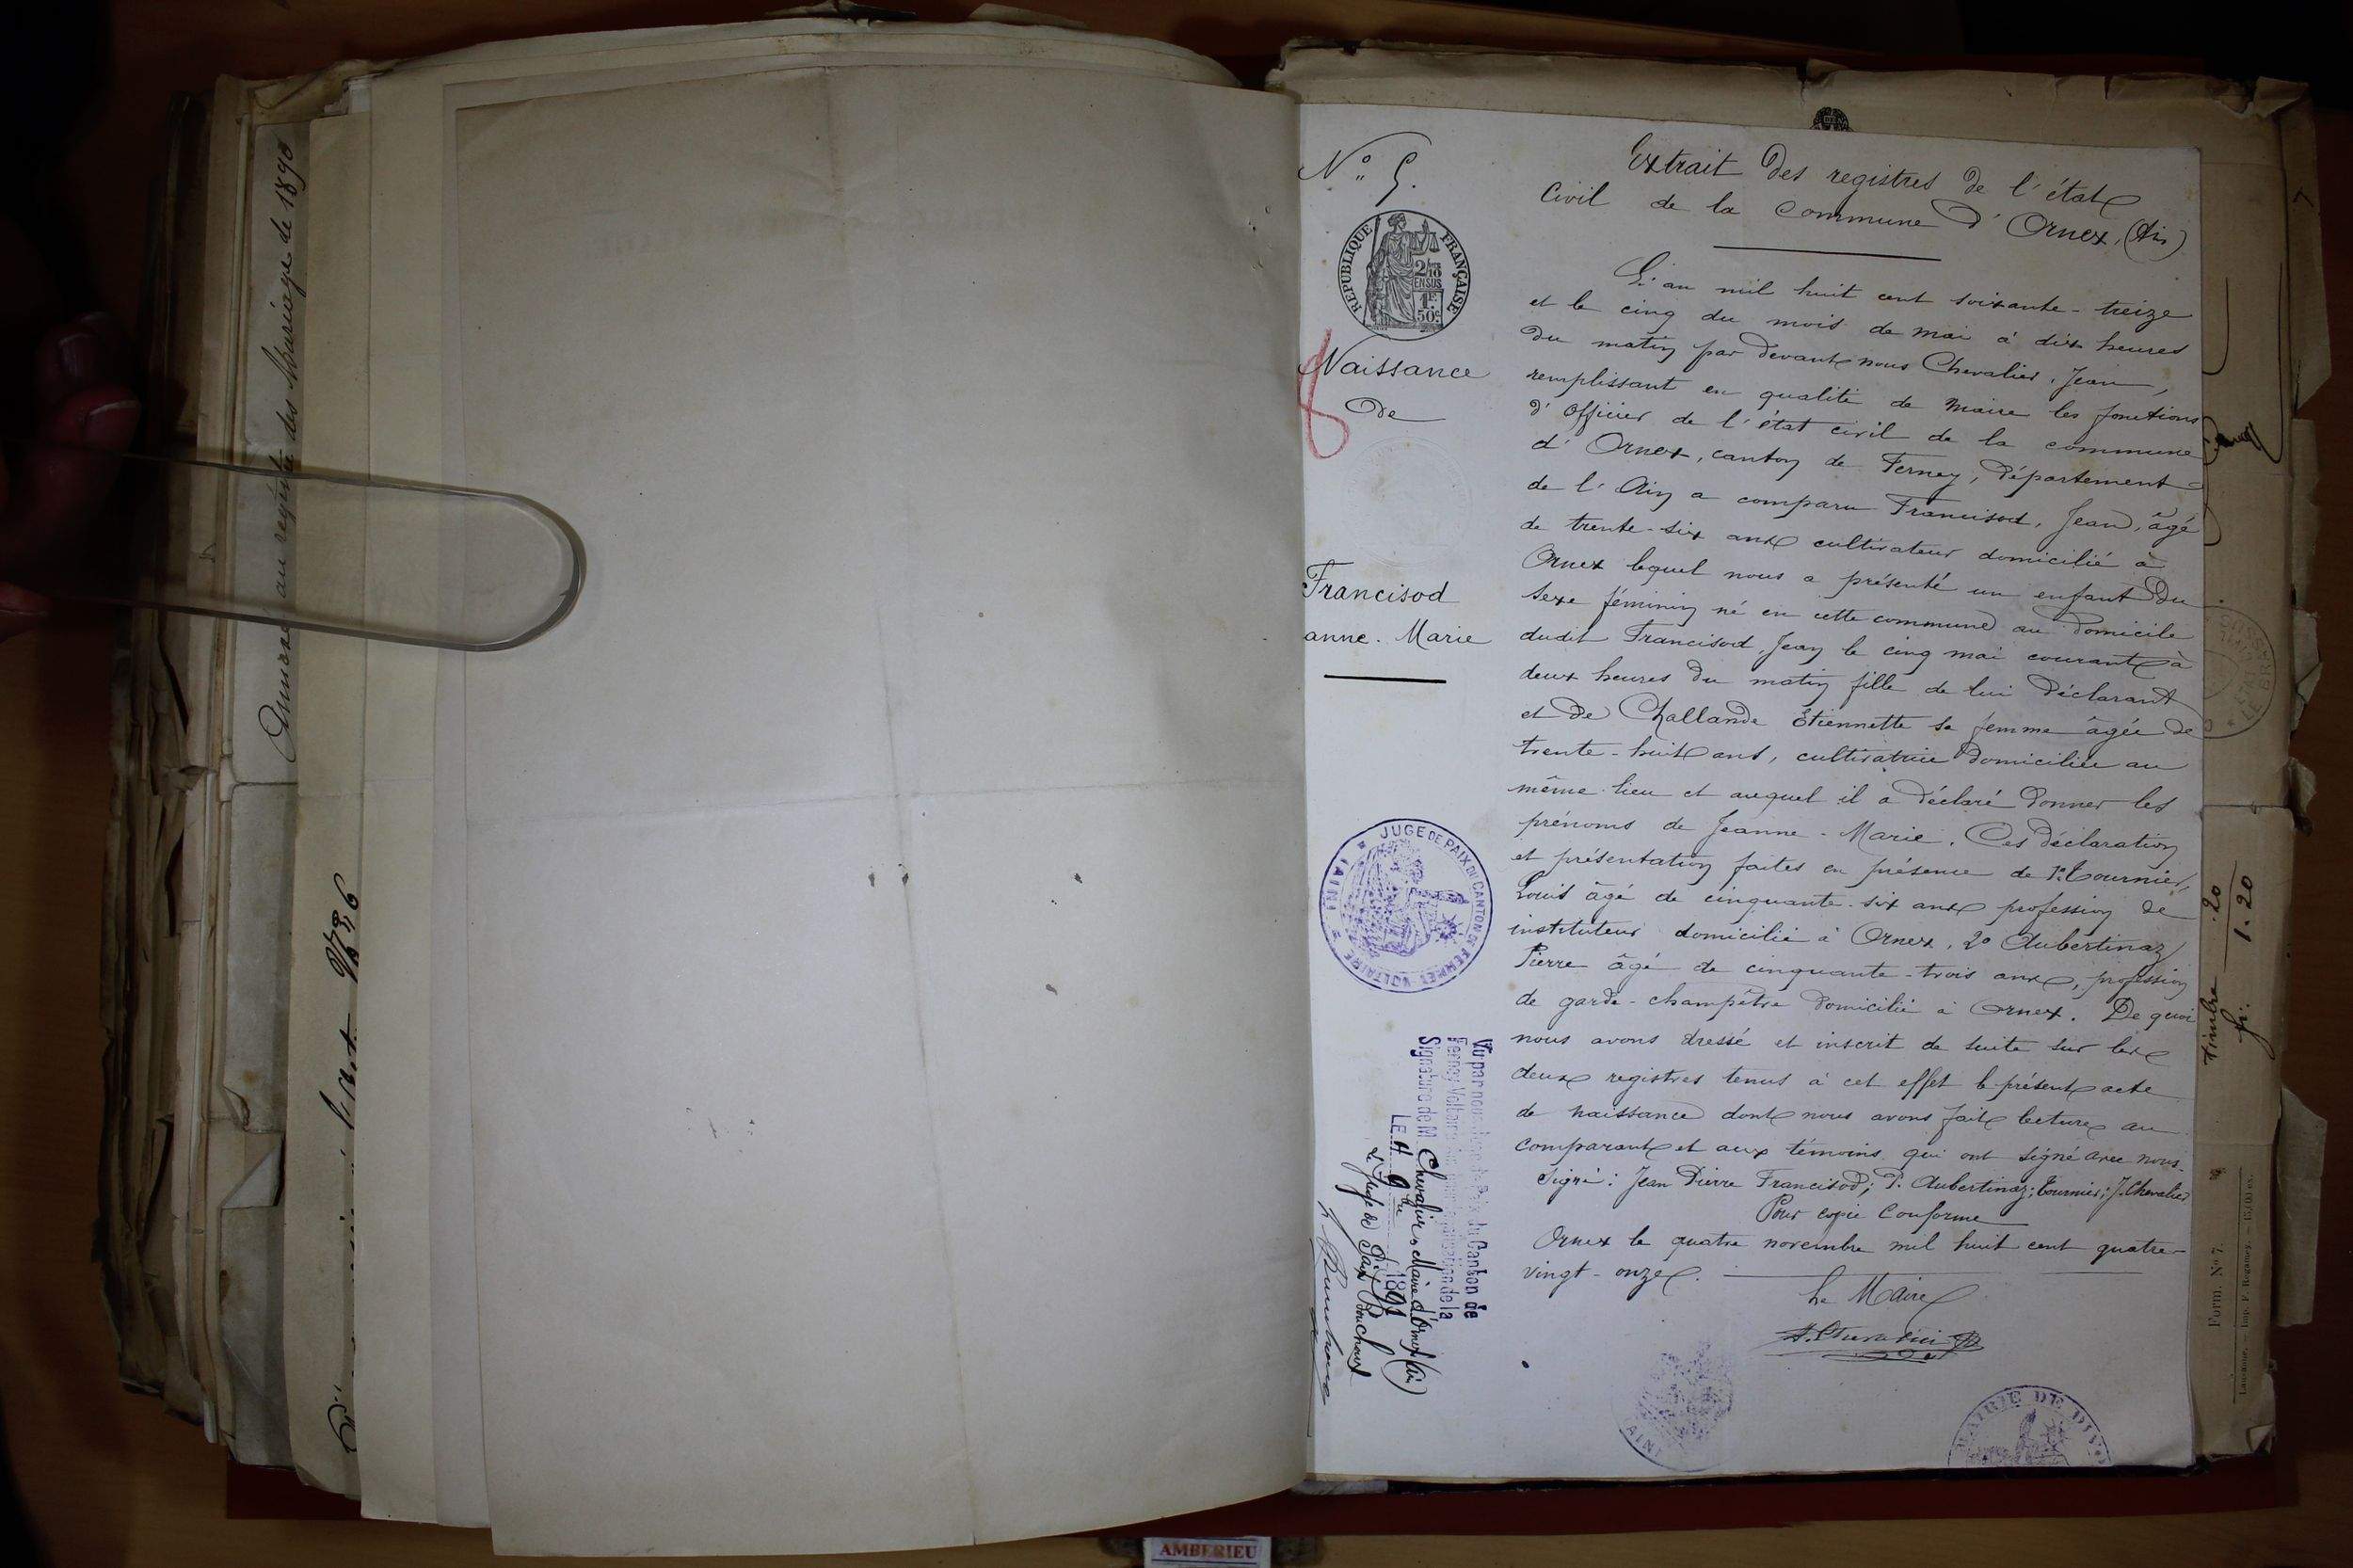 au registre des Mariages de 1890
N° 5.
RÉPUBLIQUE FRANÇAISE
2/10
EN SUS
1F.
50c.
Naissance
de
Francisod
anne-Marie
JUGE DE PAIX DU CANTON DE FERNEY-VOLTAIRE
(AIN)
Vu par nous Juge de Paix du Canton de
Ferney-Voltaire pour légalisation de la
Signature de M. Chevalier, Maire d'Ornex (Ain)
LE 4 9bre 1891
Le Juge de Paix
Extrait des registres de l'état
Civil de la Commune d'Ornex, (Ain)
L'an mil huit cent soixante-treize
et le cinq du mois de mai à dix heures
du matin par devant nous Chevalier, Jean,
remplissant en qualité de Maire les fonctions
d'officier de l'état civil de la commune
d'Ornex, canton de Ferney, Département
de l'Ain a comparu Francisod, Jean, âgé
de trente-six ans cultivateur domicilié à
Ornex lequel nous a présenté un enfant du
sexe féminin né en cette commune au domicile
dudit Francisod, Jean le cinq mai courant à
deux heures du matin fille de lui déclarant
et de Challande Etiennette sa femme âgée de
trente-huit ans, cultivatrice domiciliée au
même lieu et auquel il a déclaré donner les
prénoms de Jeanne-Marie. Ces déclaration
et présentation faites en présence de 1° Tournier,
Louis âgé de cinquante-six ans profession de
instituteur domicilié à Ornex, 2° Aubertinaz
Pierre âgé de cinquante-trois ans, profession
de garde-champêtre domicilié à Ornex. De quoi
nous avons dressé et inscrit de suite sur les
deux registres tenus à cet effet le présent acte
de naissance dont nous avons fait lecture au
comparant et aux témoins qui ont signé avec nous.
Signé: Jean Pierre Francisod; P. Aubertinaz; Tournier; J. Chevalier
Pour copie Conforme
Ornex le quatre novembre mil huit cent quatre-
vingt-onze.
Le Maire
MAIRIE DE
AIN
timbre .20
fr. 1.20
Form. No 7.
Lausanne. Imp. F. Regamey.
AMBERIEU